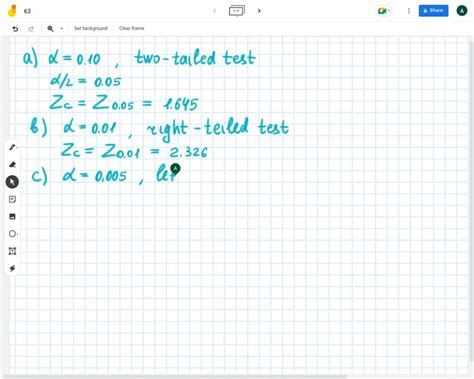 63
Share
A
Set background
Clear frame
a) α = 0.10 , two-tailed test
α/2 = 0.05
Zc = Z0.05 = 1.645
b) α = 0.01 , right-teiled test
Zc = Z0.01 = 2.326
c) α = 0.005 , lef
A